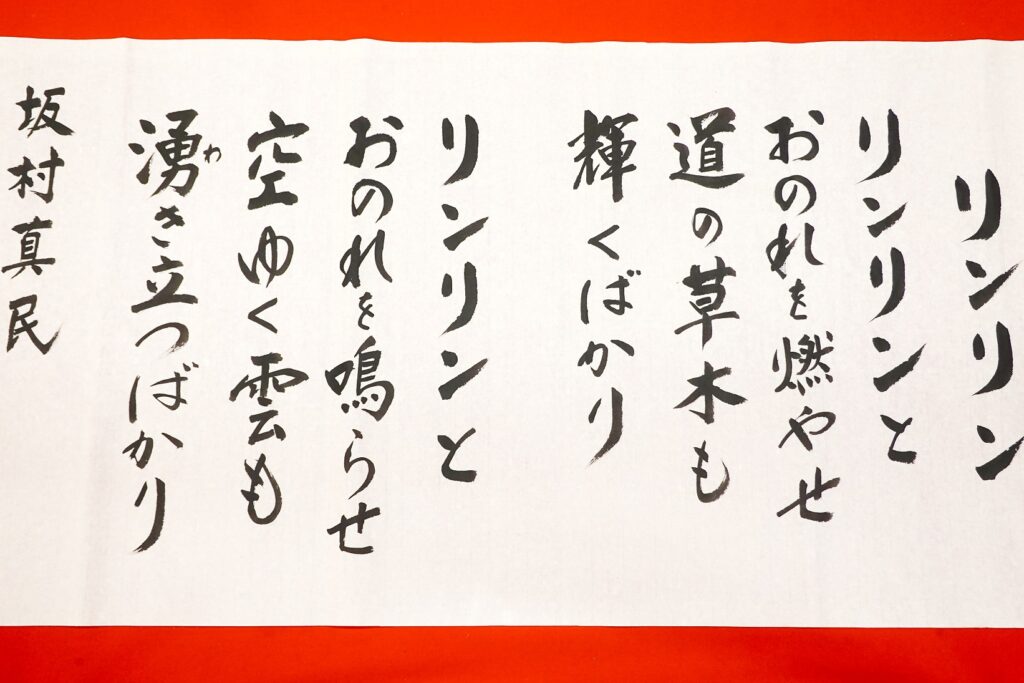 リンリン
リンリンと
おのれを燃やせ
道の草木も
輝くばかり
リンリンと
おのれを鳴らせ
空ゆく雲も
湧き立つばかり
わ
坂村真民